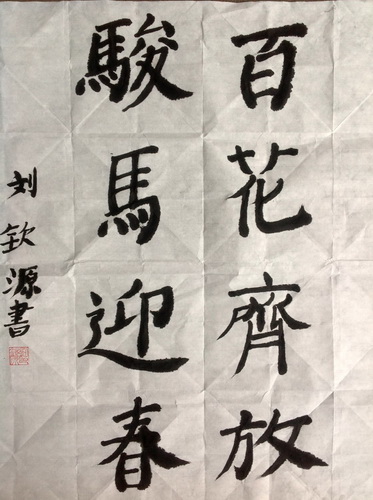 百花齊放
駿馬迎春
刘欽源書